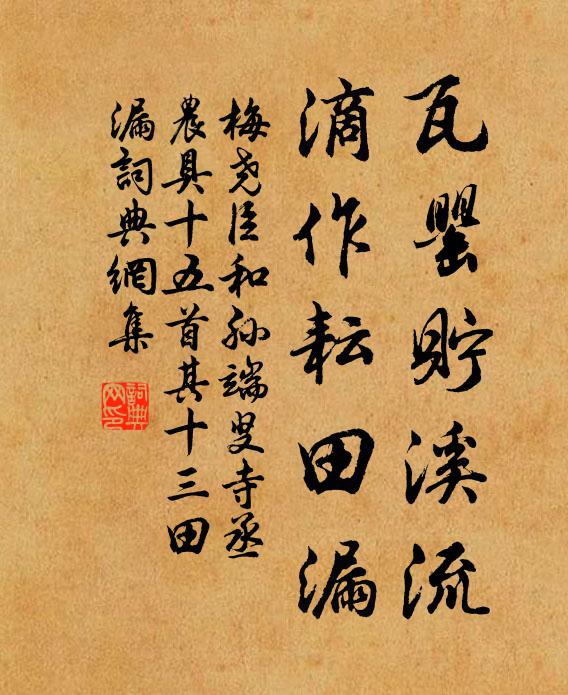 瓦罌貯溪流
滴作耘田漏
梅尧臣和孙端叟寺丞
農具十五首其十三田
漏詞典網集
詞典
网印